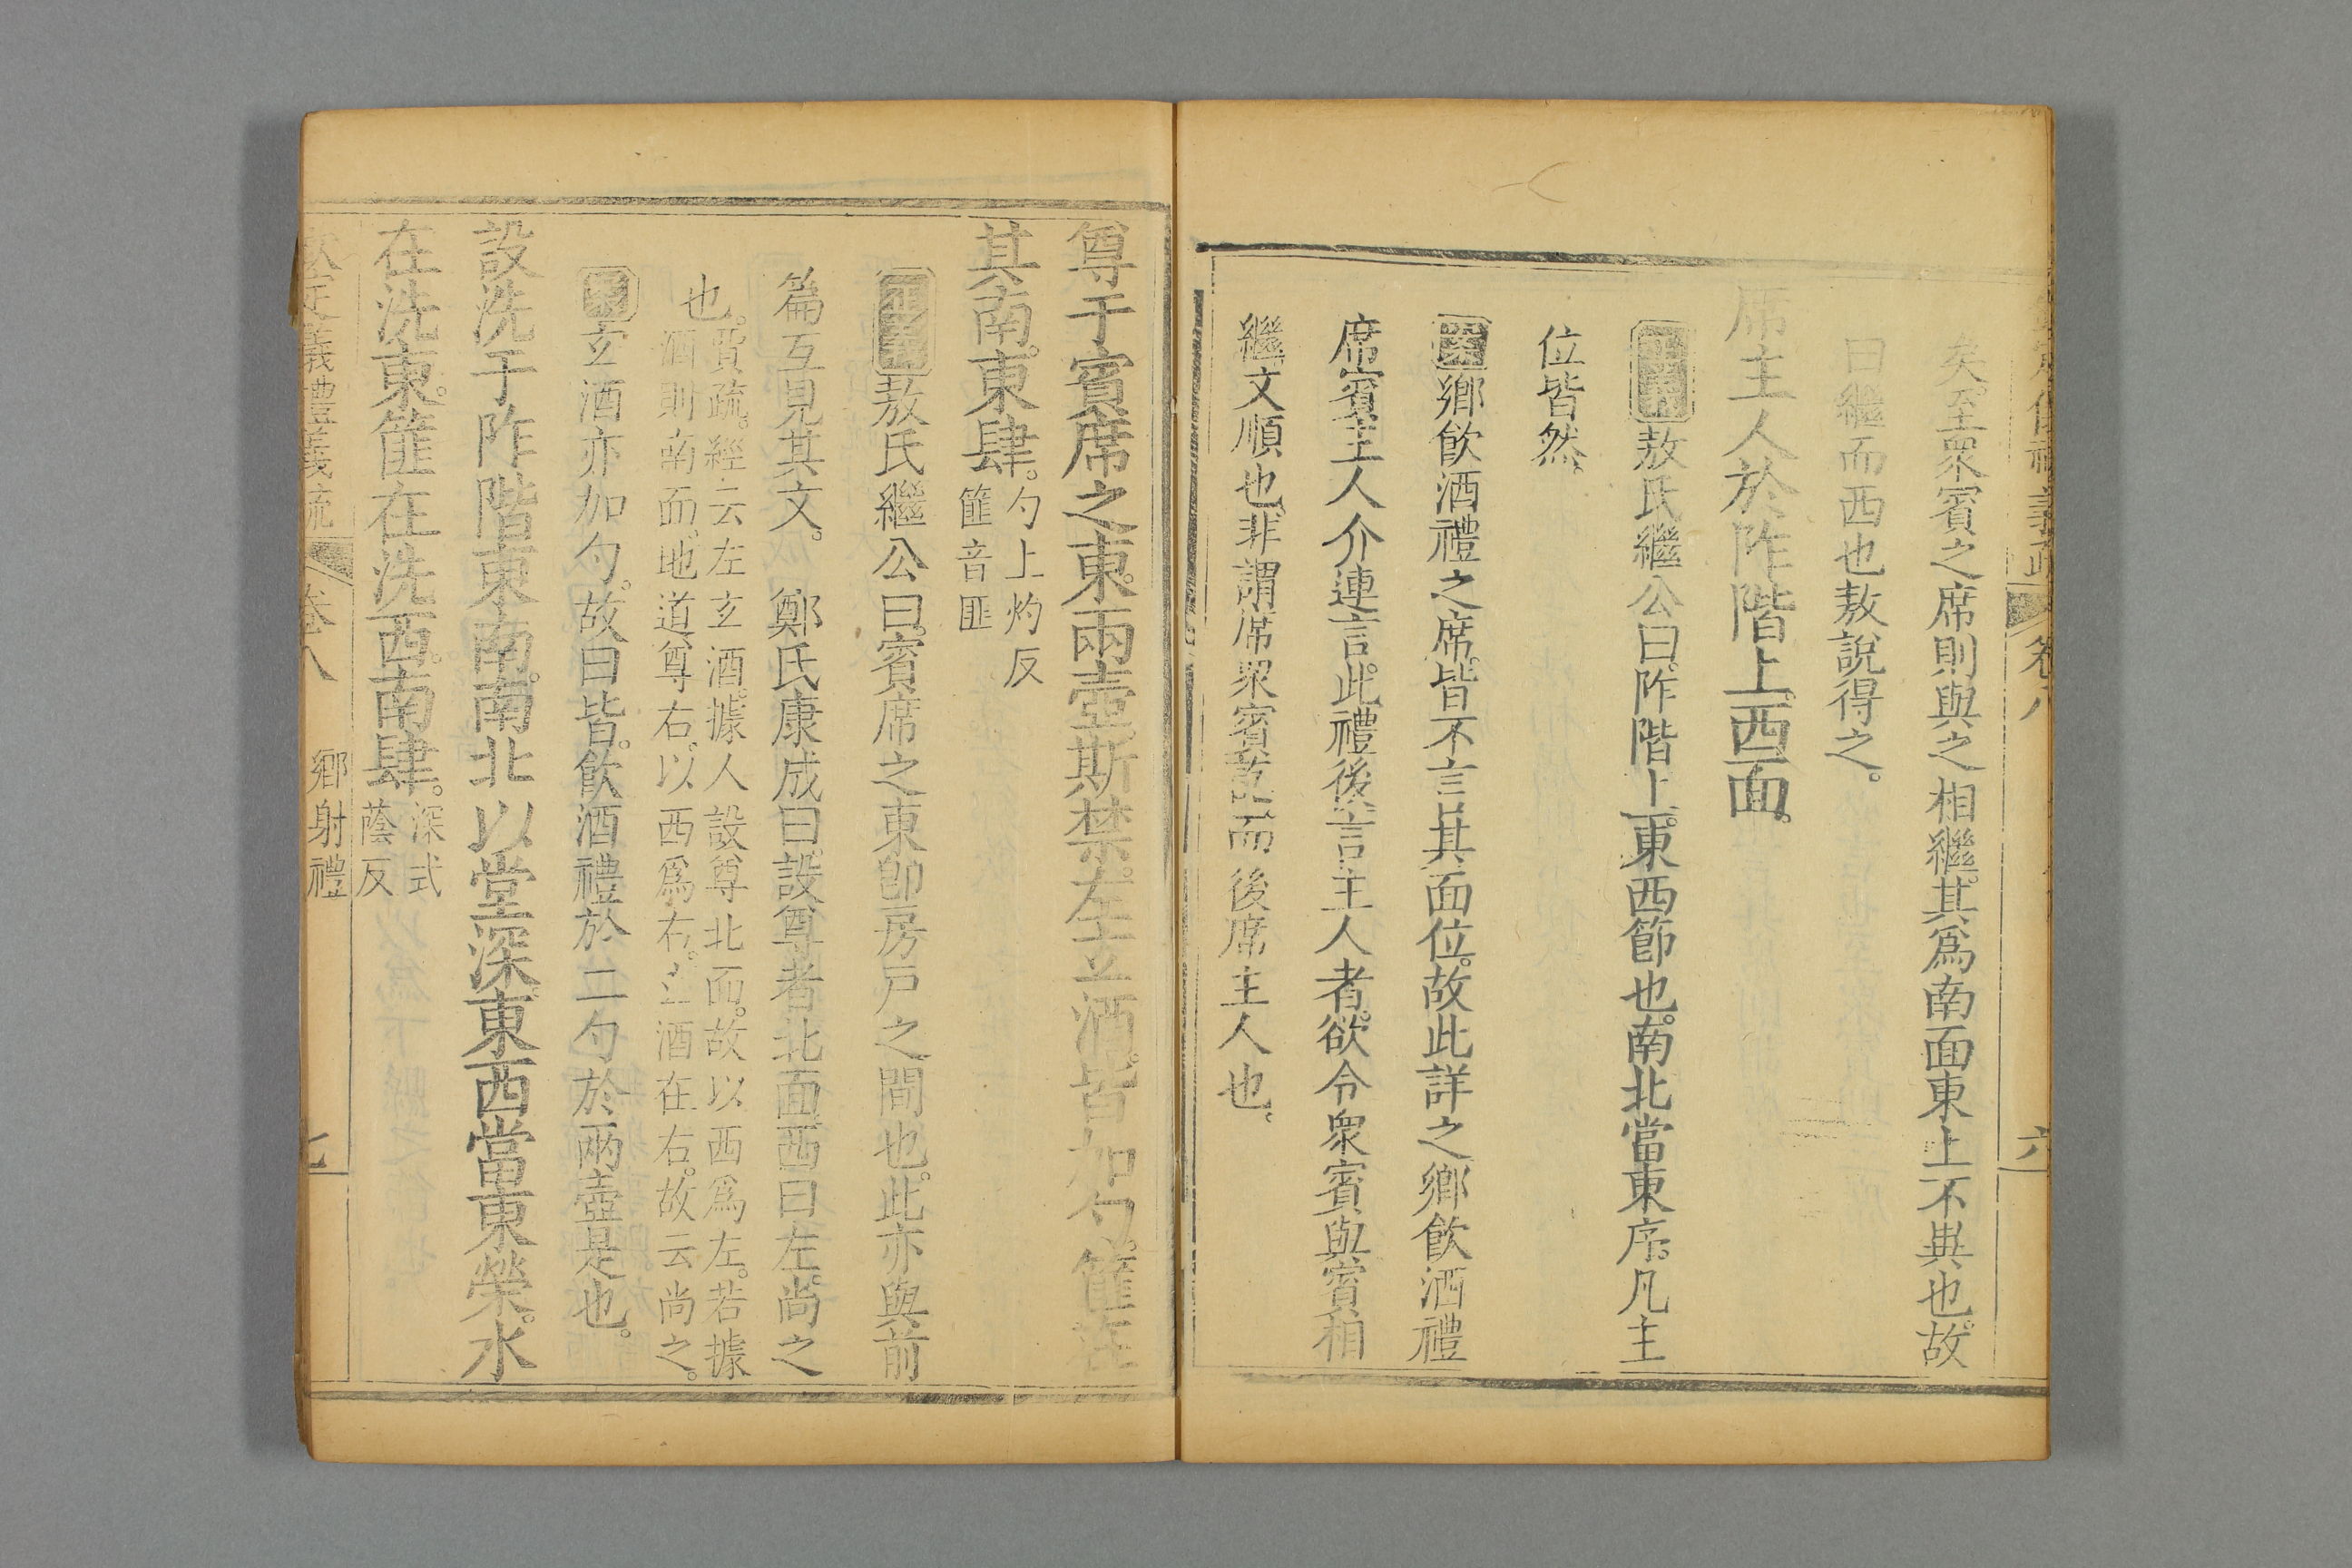 欽定儀禮義疏 卷八 六
矣至衆賓之席則與之相繼其爲南面東上不異也故
曰繼而西也敖說得之。
席主人於阼階上西面。
正義敖氏繼公曰阼階上東西節也。南北當東序。凡主
位皆然。
案鄉飲酒禮之席。皆不言其面位。故此詳之鄉飲酒禮
席賓主人介連言。此禮後言主人者。欲令衆賓與賓相
繼文順也。非謂席衆賓訖而後席主人也。
尊于賓席之東。兩壺斯禁。左玄酒。皆加勺。篚在
其南。東肆。勺上灼反篚音匪
正義敖氏繼公曰。賓席之東卽房戶之間也。此亦與前
篇互見其文。 鄭氏康成曰。設尊者北面西曰左。尚之
也。賈疏。經云左玄酒。據人設尊北面。故以西爲左。若據
酒則南面。地道尊右。以西爲右。玄酒在右。故云尚之。
案玄酒亦加勺。故曰皆。飲酒禮於二勺於兩壺是也。
設洗于阼階東南。南北以堂深。東西當東榮。水
在洗東。篚在洗西。南肆。深式蔭反
欽定儀禮義疏 卷八 鄉射禮 七